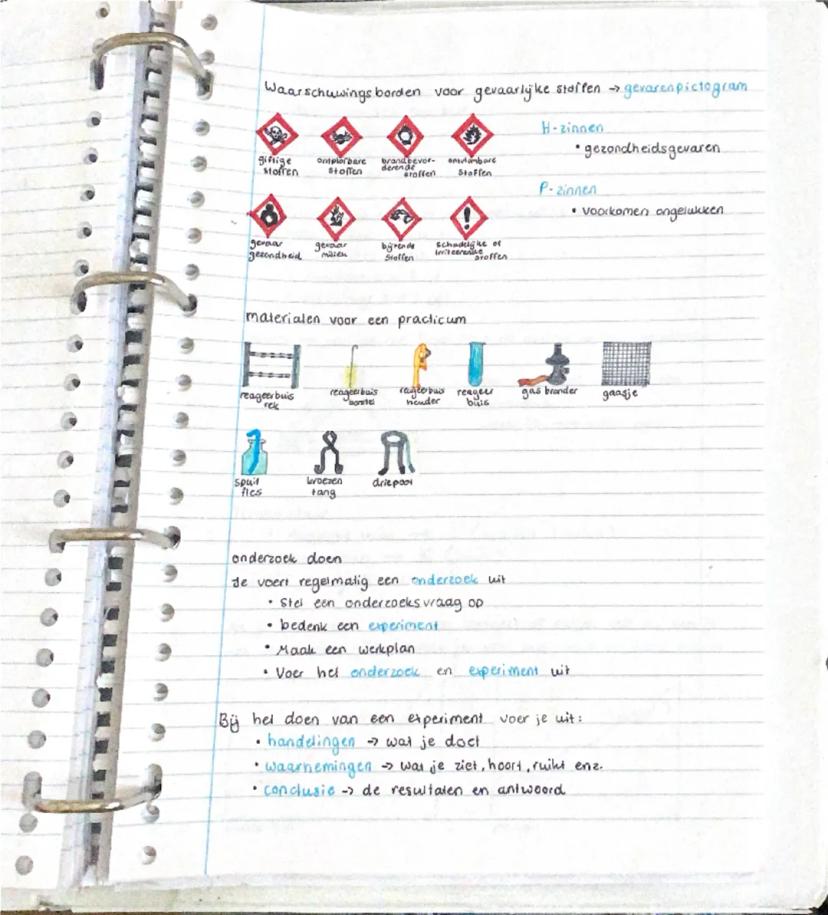 Waarschuwingsborden voor gevaarlijke stoffen → gevarenpictogram
H-zinnen
• gezondheidsgevaren
P-zinnen
• voorkomen ongelukken
giftige stoffen
ontplofbare stoffen
brandbevorderende stoffen
ontvlambare stoffen
gevaar gezondheid
gevaar milieu
bijtende stoffen
schadelijke of irriterende stoffen
materialen voor een practicum
reageerbuis rek
reageerbuis borstel
reageerbuis houder
reageer buis
gas brander
gaasje
spuit fles
kroezen tang
driepoot
onderzoek doen
Je voert regelmatig een onderzoek uit
• Stel een onderzoeksvraag op
• bedenk een experiment
• Maak een werkplan
• Voer het onderzoek en experiment uit
Bij het doen van een experiment voer je uit:
• handelingen → wat je doet
• waarnemingen → wat je ziet, hoort, ruikt enz.
• conclusie → de resultaten en antwoord